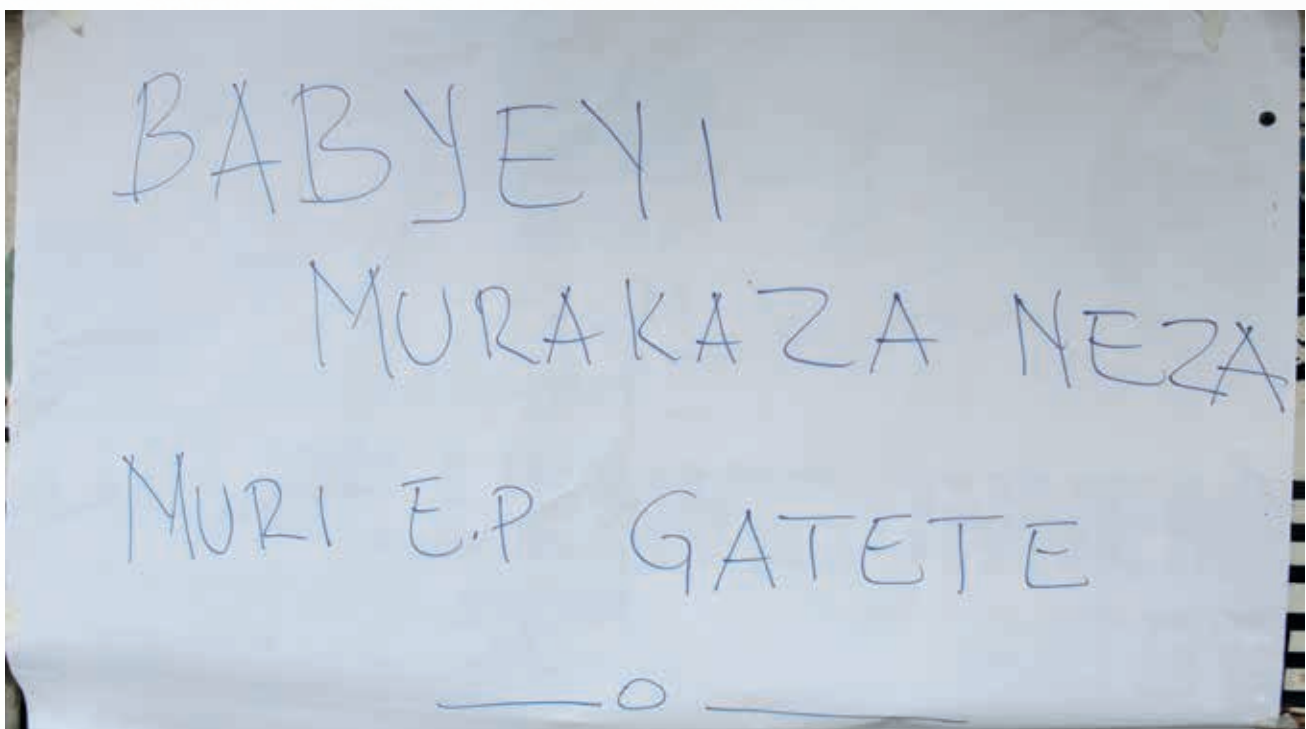 BABYEYI
MURAKAZA NEZA
MURI E.P GATETE